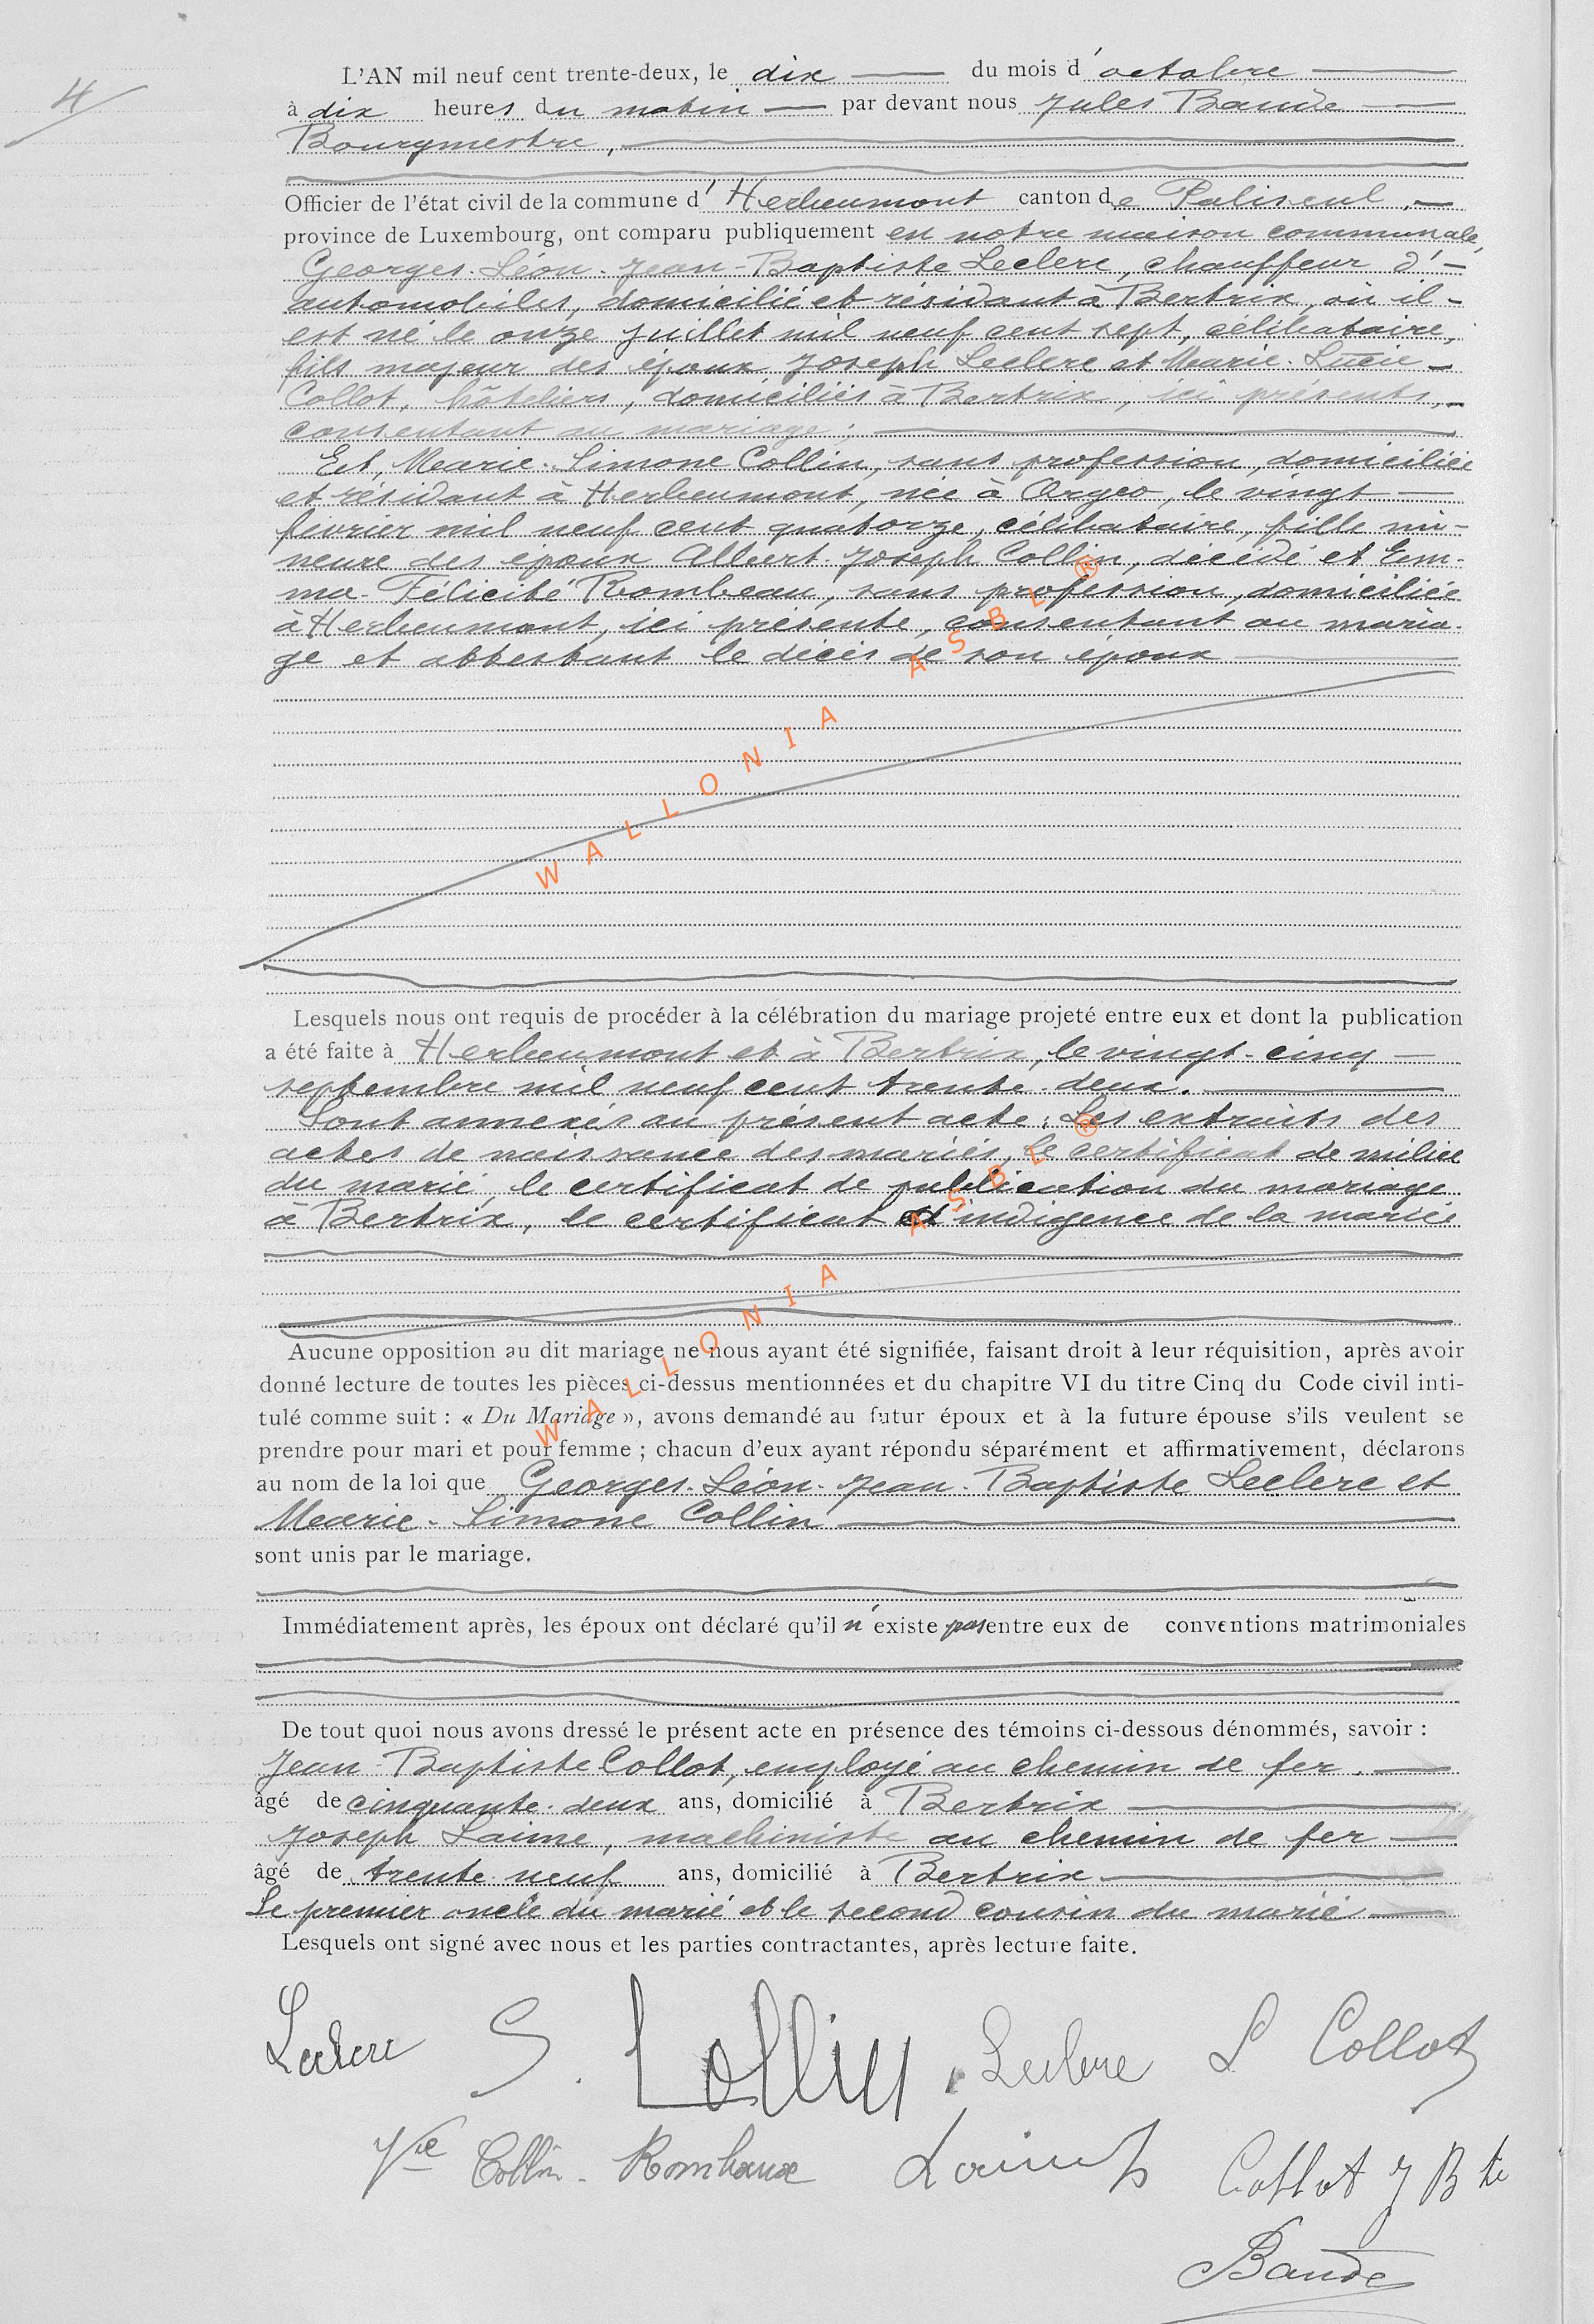 4
L'AN mil neuf cent trente-deux, le dix du mois d'octobre
à dix heures du matin par devant nous Jules Baude
Bourgmestre,
Officier de l'état civil de la commune d'Herbeumont canton de Paliseul,
province de Luxembourg, ont comparu publiquement en notre maison communale,
Georges-Léon-Jean-Baptiste Leclere, chauffeur d'-
automobiles, domicilié et résidant à Bertrix, où il
est né le onze juillet mil neuf cent sept, célibataire,
fils majeur des époux Joseph Leclere et Marie-Lucie
Collot, hôteliers, domiciliés à Bertrix, ici présents,
consentant au mariage;
Et, Marie-Simone Collin, sans profession, domiciliée
et résidant à Herbeumont, née à Orgeo, le vingt
février mil neuf cent quatorze, célibataire, fille mi-
neure des époux Albert Joseph Collin, décédé et Em-
ma-Félicité Rombeau, sans profession, domiciliée
à Herbeumont, ici présente, consentant au maria-
ge et attestant le décès de son époux
WALLONIA ASBL ®
Lesquels nous ont requis de procéder à la célébration du mariage projeté entre eux et dont la publication
a été faite à Herbeumont et à Bertrix, le vingt-cinq
septembre mil neuf cent trente-deux.
Sont annexés au présent acte: Les extraits des
actes de naissance des mariés, le certificat de milice
du marié, le certificat de publication du mariage
à Bertrix, le certificat d'indigence de la mariée
WALLONIA ASBL ®
Aucune opposition au dit mariage ne nous ayant été signifiée, faisant droit à leur réquisition, après avoir
donné lecture de toutes les pièces ci-dessus mentionnées et du chapitre VI du titre Cinq du Code civil inti-
tulé comme suit : « Du Mariage », avons demandé au futur époux et à la future épouse s'ils veulent se
prendre pour mari et pour femme ; chacun d'eux ayant répondu séparément et affirmativement, déclarons
au nom de la loi que Georges-Léon-Jean-Baptiste Leclere et
Marie-Simone Collin
sont unis par le mariage.
Immédiatement après, les époux ont déclaré qu'il n'existe pas entre eux de conventions matrimoniales
De tout quoi nous avons dressé le présent acte en présence des témoins ci-dessous dénommés, savoir :
Jean-Baptiste Collot, employé au chemin de fer.
âgé de cinquante-deux ans, domicilié à Bertrix
Joseph Laime, machiniste au chemin de fer
âgé de trente-neuf ans, domicilié à Bertrix
Le premier oncle du marié et le second cousin du marié
Lesquels ont signé avec nous et les parties contractantes, après lecture faite.
Leclere S. Collin Leclere L Collot
Vve Collin-Rombaux Collot J Bte
Baude